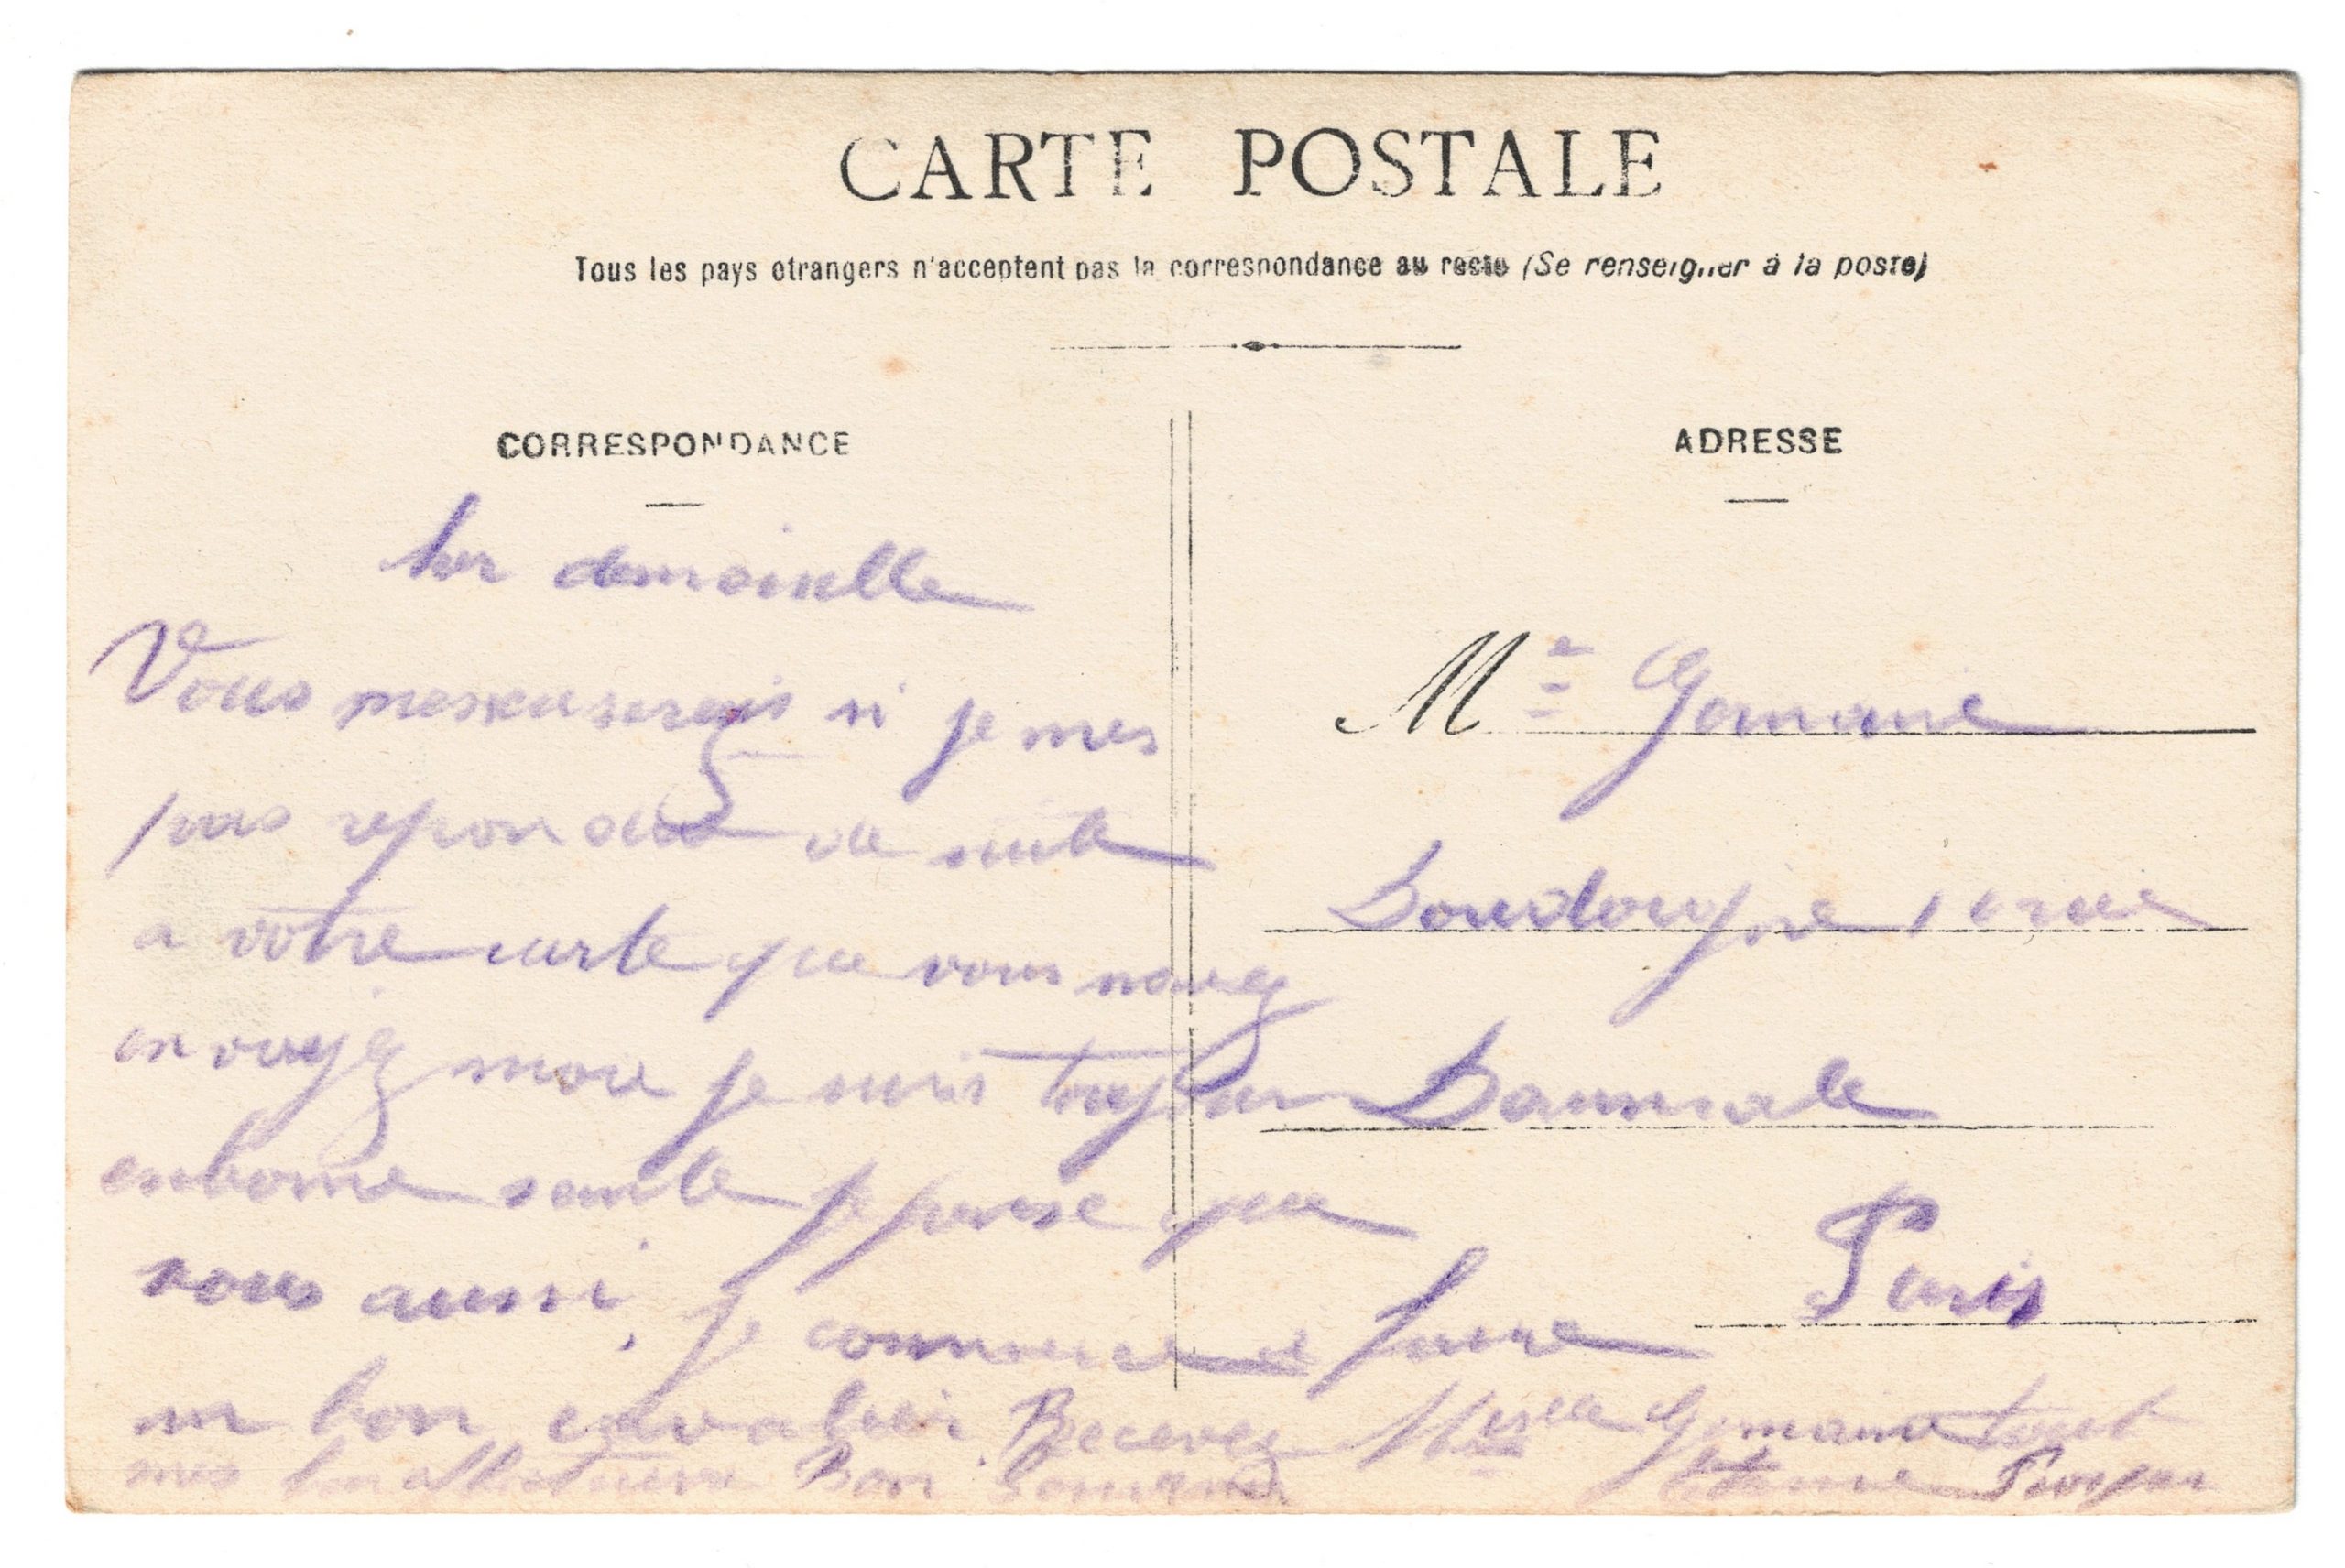 CARTE POSTALE
Tous les pays etrangers n'acceptent pas la correspondance au recto (Se renseigner à la poste)
CORRESPONDANCE
ADRESSE
demoiselle
Vous si je mes
pas de suite
a votre carte que vous mavez
envoyez moi je suis toujour
enbonne sante je pense que
vous aussi, je commence a faire
un bon cavalier. Recevez Melle Gemaine tout
mes Bon Souvenir Etienne Prosper
M
Gemaine
1 rue
Daumale
Paris